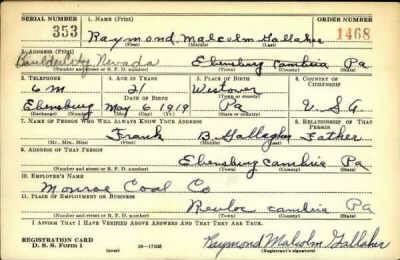 SERIAL NUMBER 1. NAME (Print) ORDER NUMBER
353 Raymond Malcolm Gallaher 1468
(First) (Middle) (Last)
2. ADDRESS (Print)
Boulder City Nevada Ebensburg Cambria Pa
(Number and street or R. F. D. number) (Town) (County) (State)
3. TELEPHONE 4. AGE IN YEARS 5. PLACE OF BIRTH 6. COUNTRY OF CITIZENSHIP
21 Westover
DATE OF BIRTH
Ebensburg May 6 1919 Pa U.S.A
(Exchange) (Number) (Mo.) (Day) (Yr.) (State or country)
7. NAME OF PERSON WHO WILL ALWAYS KNOW YOUR ADDRESS 8. RELATIONSHIP OF THAT PERSON
Frank B. Gallagher Father
(Mr., Mrs., Miss) (First) (Middle) (Last)
9. ADDRESS OF THAT PERSON
Ebensburg Cambria Pa
(Number and street or R. F. D. number) (Town) (County) (State)
10. EMPLOYER'S NAME
Monroe Coal Co
11. PLACE OF EMPLOYMENT OR BUSINESS
Revloc Cambria Pa
(Number and street or R. F. D. number) (Town) (County) (State)
I AFFIRM THAT I HAVE VERIFIED ABOVE ANSWERS AND THAT THEY ARE TRUE.
REGISTRATION CARD
D. S. S. Form 1 (over) Raymond Malcolm Gallaher
(Registrant's signature)